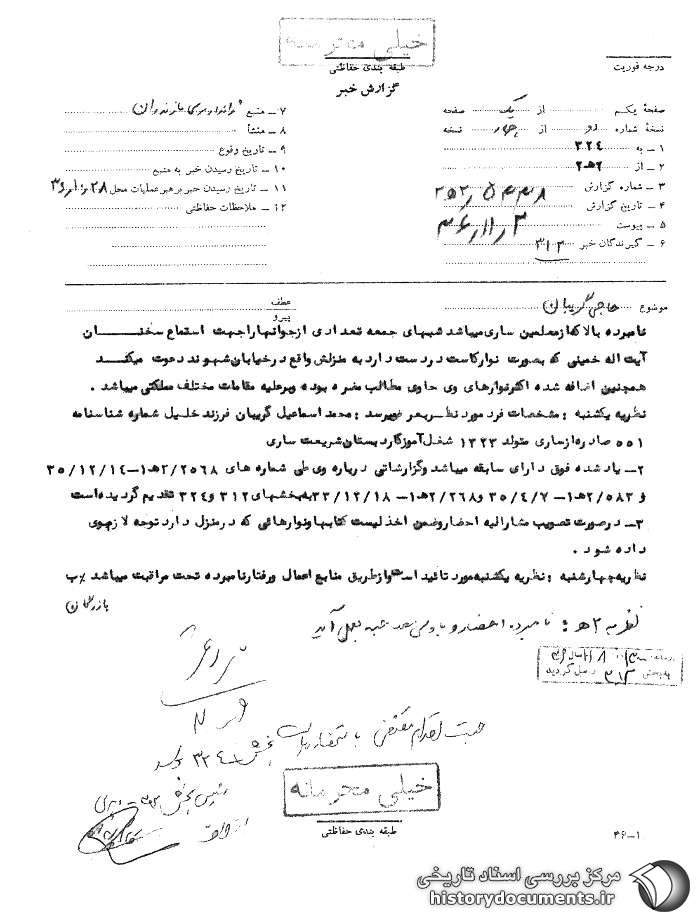 خیلی محرمانه
طبقه بندی حفاظتی
گزارش خبر
درجه فوریت
صفحهٔ یکم از یک صفحه
نسخهٔ شماره دو از چهار نسخه
۱ – به ۳۲۴
۲ – از ۲هـ
۳ – شماره گزارش
۴ – تاریخ گزارش ۳۶/۱۱/۳
۵ – پیوست
۶ – گیرندگان خبر ۳۱۲
۷ – منبع
۸ – منشأ
۹ – تاریخ وقوع
۱۰ – تاریخ رسیدن خبر به منبع
۱۱ – تاریخ رسیدن خبر برهبر عملیات محل
۱۲ – ملاحظات حفاظتی
موضوع حاجی گریبان
عطف
پیرو
نامبرده بالا که از معلمین ساری میباشد شبهای جمعه تعدادی از جوانها را جهت استماع سخنـــان
آیت اله خمینی که بصورت نوار کاست در دست دارد به منزلش واقع در خیابان شهبوند دعوت میکنــد
همچنین اضافه شده اکثر نوارهای وی حاوی مطالب مضره بوده و برعلیه مقامات مختلف مملکتی میباشد .
نظریه یکشنبه : مشخصات فرد مورد نظر بعرض میرسد : محمد اسماعیل گریبان فرزند خلیل شماره شناسنامه
۵۵۱ صادره از ساری متولد ۱۳۲۳ شغل آموزگار دبستان شریعت ساری
۲– یاد شده فوق دارای سابقه میباشد و گزارشاتی درباره وی طی شماره های ۲/۲۵۶۸هـ۱– ۳۵/۱۲/۱۴
و ۲/۵۸۳هـ۱– ۳۵/۴/۷ و ۲/۲۶۸هـ۱– ۳۳/۱۲/۱۸ به بخشهای ۳۱۲ و ۳۲۴ تقدیم گردیده است
۳– درصورت تصویب مشارالیه احضار و ضمن اخذ لیست کتابها و نوارهائی که در منزل دارد توجه لازم بوی
داده شود .
نظریه چهارشنبه : نظریه یکشنبه مورد تائید است و از طریق منابع اعمال و رفتار نامبرده تحت مراقبت میباشد ٪ب
نظریه ۲هـ : نامبرده احضار و
به بخش ۳۱۲ واصل گردید
جهت اقدام مقتضی
بخش ۳۲۴
رئیس بخش
خیلی محرمانه
طبقه بندی حفاظتی
۴۶–۱
مرکز بررسی اسناد تاریخی
historydocuments.ir